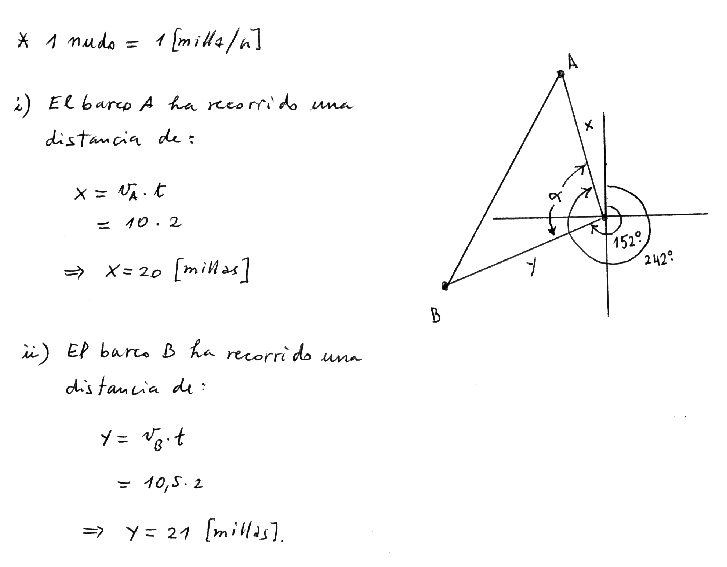 * 1 nudo = 1 [milla/h]
i) El barco A ha recorrido una
distancia de:
x = v_A · t
= 10 · 2
⇒ x = 20 [millas]
ii) El barco B ha recorrido una
distancia de:
y = v_B · t
= 10,5 · 2
⇒ y = 21 [millas].
A
x
α
152°
242°
y
B